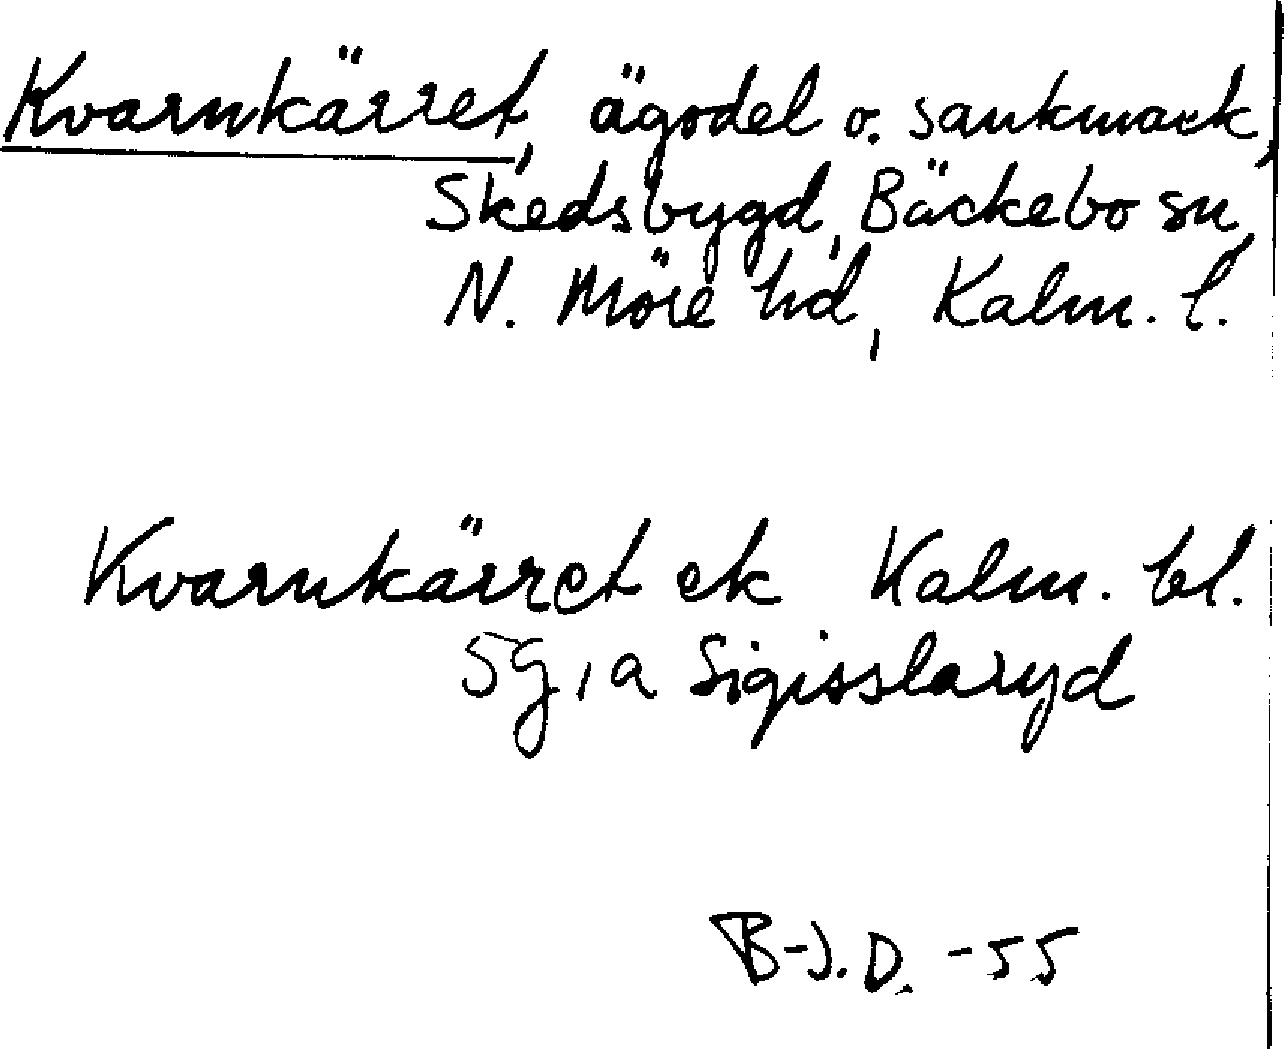 Kvarnkärret, ägodel o. sankmark,
Skedsbygd, Bäckebo sn,
N. Möre hd, Kalm. l.
Kvarnkärret ek Kalm. bl.
5g, a Sigisslaryd
B-J. D. -55